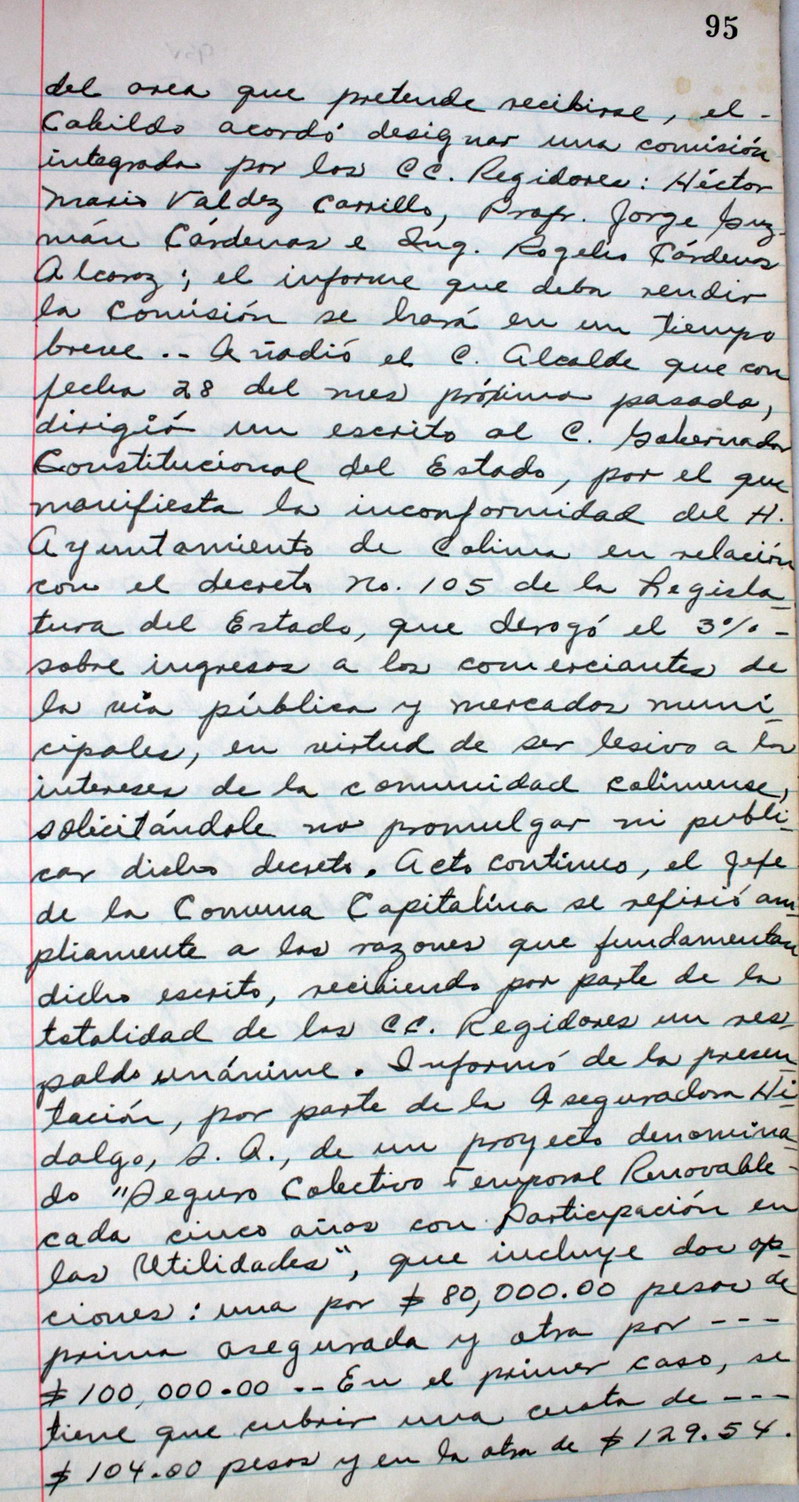 95
del area que pretende recibirse, el -
Cabildo acordó designar una comisión
integrada por los CC. Regidores: Héctor
Mario Valdez Carrillo, Profr. Jorge Guz-
mán Cárdenas e Ing. Rogelio Cárdenas
Alcaraz; el informe que deba rendir
la Comisión se hará en un tiempo
breve.. Añadió el C. Alcalde que con
fecha 28 del mes próximo pasado,
dirigió un escrito al C. Gobernador
Constitucional del Estado, por el que
manifiesta la inconformidad del H.
Ayuntamiento de Colima en relación
con el decreto No. 105 de la Legisla-
tura del Estado, que derogó el 3% -
sobre ingresos a los comerciantes de
la vía pública y mercados muni-
cipales, en virtud de ser lesivo a los
intereses de la comunidad colimense,
solicitándole no promulgar ni publi-
car dicho decreto. Acto continuo, el Jefe
de la Comuna Capitalina se refirió am-
pliamente a las razones que fundamentan
dicho escrito, recibiendo por parte de la
totalidad de los CC. Regidores un res-
paldo unánime. Informó de la presen-
tación, por parte de la Aseguradora Hi-
dalgo, S. A., de un proyecto denomina-
do "Seguro Colectivo Temporal Renovable-
cada cinco años con Participación en
las Utilidades", que incluye dos op-
ciones: una por $ 80,000.00 pesos de
prima asegurada y otra por ---
$ 100,000.00 .. En el primer caso, se
tiene que cubrir una cuota de ---
$ 104.00 pesos y en la otra de $ 129.54.